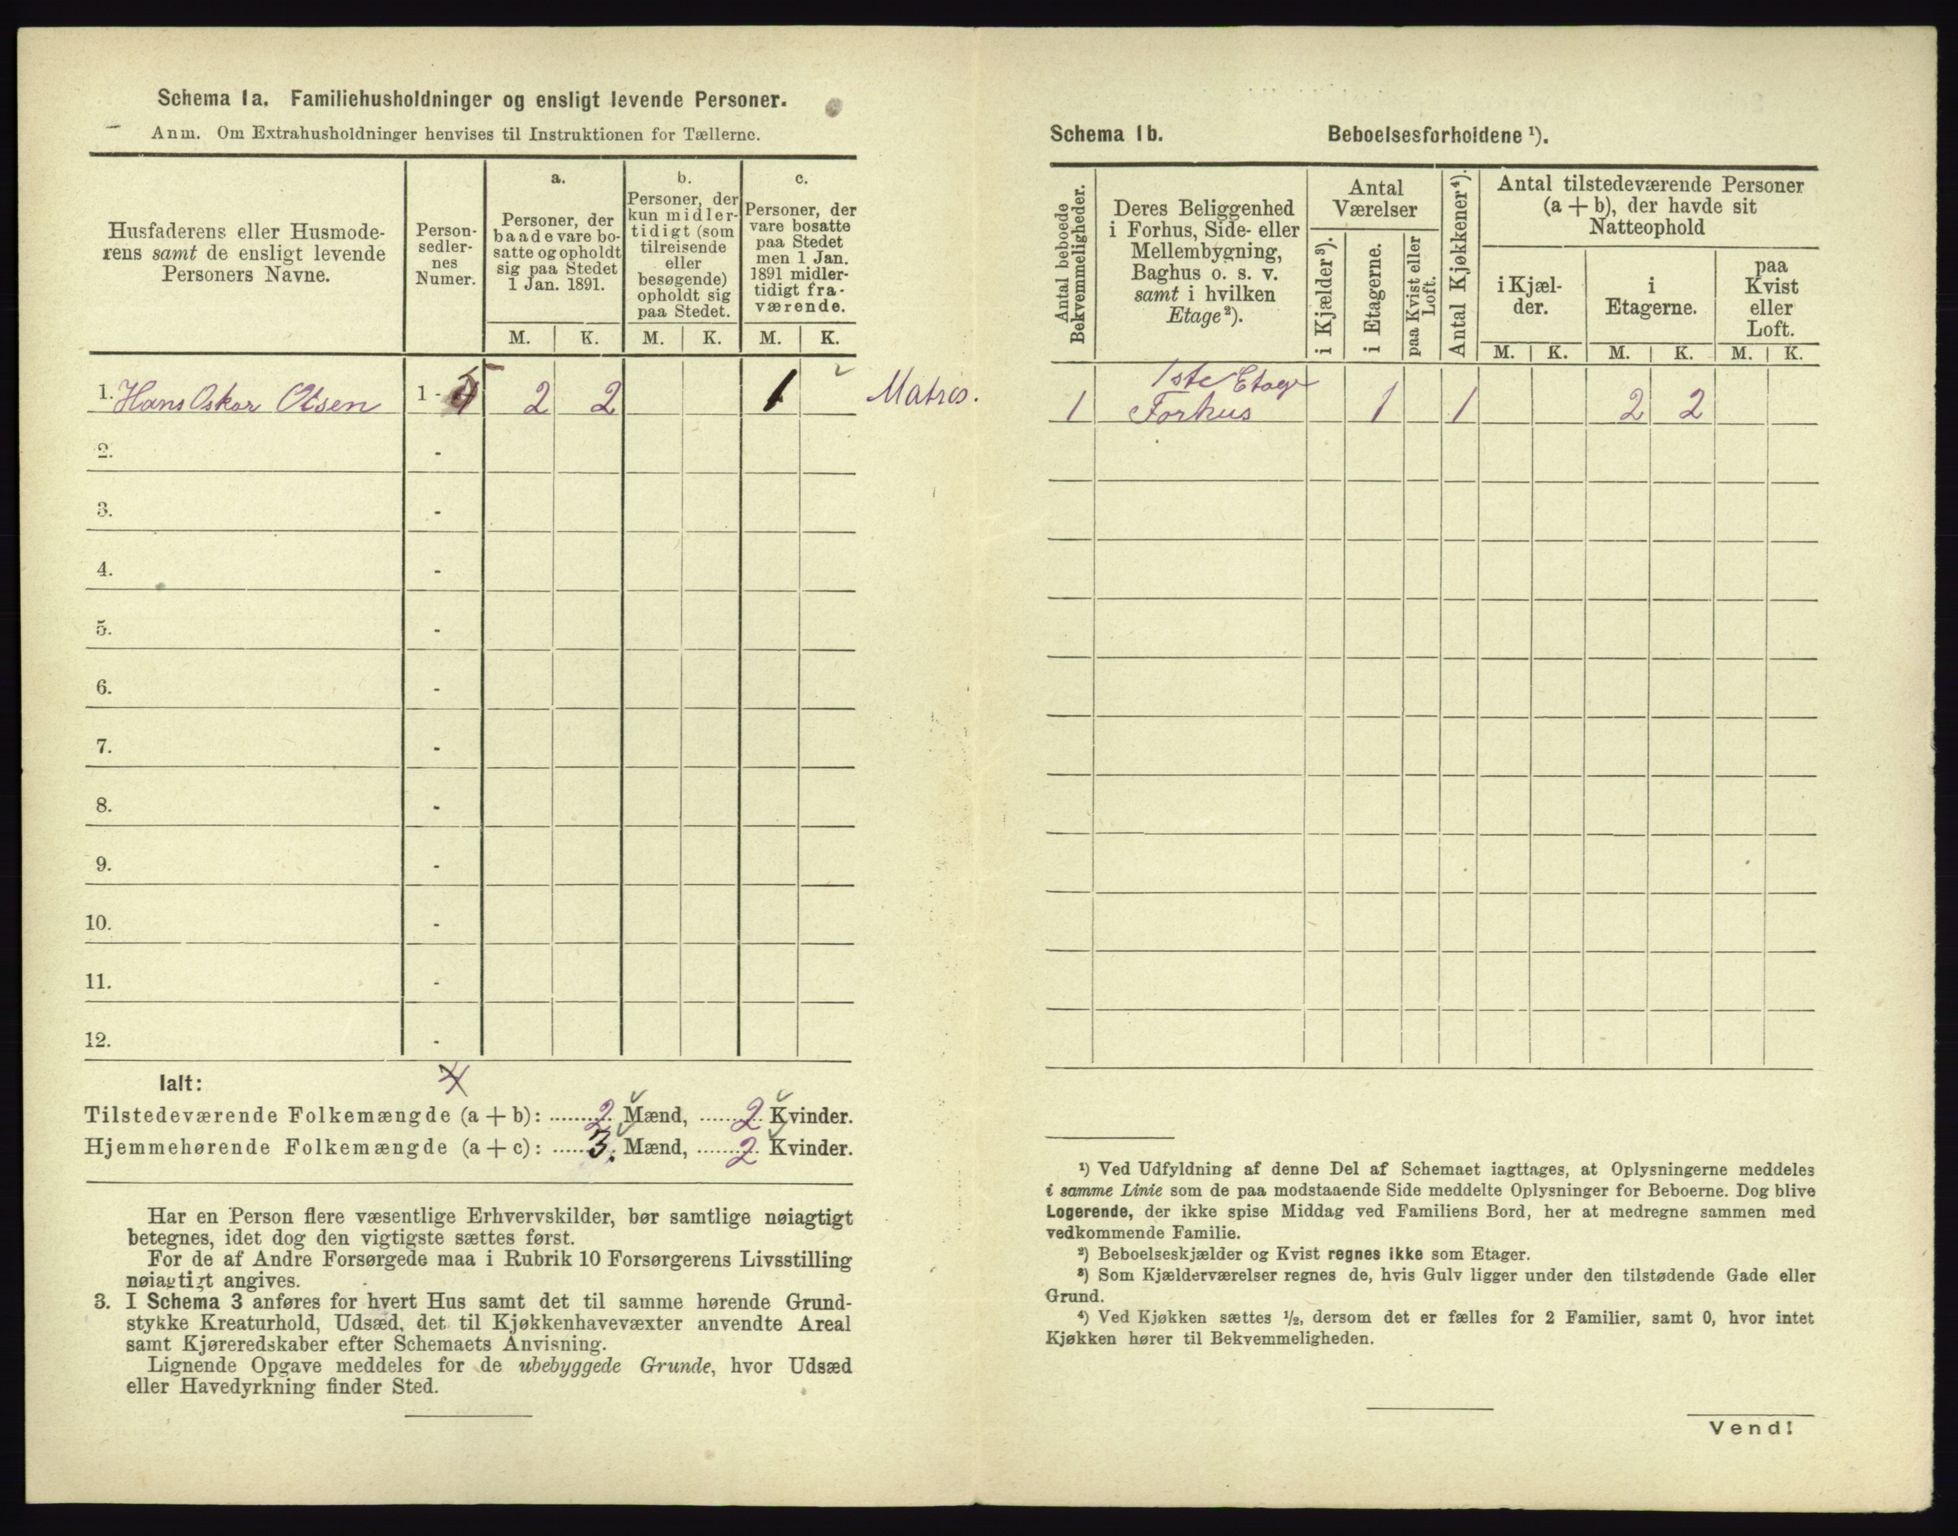 Schema 1a. Familiehusholdninger og ensligt levende Personer.
Anm. Om Extrahusholdninger henvises til Instruktionen for Tællerne.
Husfaderens eller Husmode-
rens samt de ensligt levende
Personers Navne.
Person-
sedler-
nes
Numer.
a.
Personer, der
baade vare bo-
satte og opholdt
sig paa Stedet
1 Jan. 1891.
b.
Personer, der
kun midler-
tidigt (som
tilreisende
eller
besøgende)
opholdt sig
paa Stedet.
c.
Personer, der
vare bosatte
paa Stedet
men 1 Jan.
1891 midler-
tidigt fra-
værende.
M. K. M. K. M. K.
1. Hans Oskar Olsen 1 - 5 2 2 1 Matros.
2. -
3. -
4. -
5. -
6. -
7. -
8. -
9. -
10. -
11. -
12. -
4
Ialt:
Tilstedeværende Folkemængde (a + b): 2 Mænd, 2 Kvinder.
Hjemmehørende Folkemængde (a + c): 3. Mænd, 2 Kvinder.
Har en Person flere væsentlige Erhvervskilder, bør samtlige nøiagtigt
betegnes, idet dog den vigtigste sættes først.
For de af Andre Forsørgede maa i Rubrik 10 Forsørgerens Livsstilling
nøiagtigt angives.
3. I Schema 3 anføres for hvert Hus samt det til samme hørende Grund-
stykke Kreaturhold, Udsæd, det til Kjøkkenhavevæxter anvendte Areal
samt Kjøreredskaber efter Schemaets Anvisning.
Lignende Opgave meddeles for de ubebyggede Grunde, hvor Udsæd
eller Havedyrkning finder Sted.
Schema 1b. Beboelsesforholdene ¹).
Antal beboede
Bekvemmeligheder.
Deres Beliggenhed
i Forhus, Side- eller
Mellembygning,
Baghus o. s. v.
samt i hvilken
Etage²).
Antal
Værelser
i Kjælder³).
i Etagerne.
paa Kvist eller
Loft.
Antal Kjøkkener⁴).
Antal tilstedeværende Personer
(a + b), der havde sit
Natteophold
i Kjæl-
der.
i
Etagerne.
paa
Kvist
eller
Loft.
M. K. M. K. M. K.
1ste Etage
1 Forhus 1 1 2 2
¹) Ved Udfyldning af denne Del af Schemaet iagttages, at Oplysningerne meddeles
i samme Linie som de paa modstaaende Side meddelte Oplysninger for Beboerne. Dog blive
Logerende, der ikke spise Middag ved Familiens Bord, her at medregne sammen med
vedkommende Familie.
²) Beboelseskjælder og Kvist regnes ikke som Etager.
³) Som Kjælderværelser regnes de, hvis Gulv ligger under den tilstødende Gade eller
Grund.
⁴) Ved Kjøkken sættes ½, dersom det er fælles for 2 Familier, samt 0, hvor intet
Kjøkken hører til Bekvemmeligheden.
Vend!